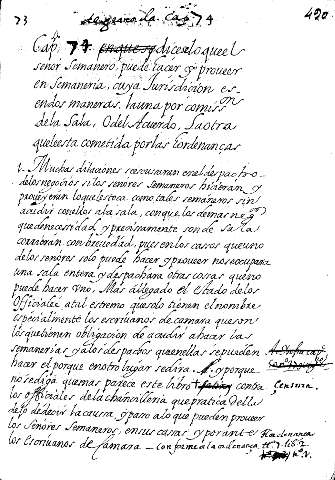 73 74 420
Capº 77 en que se dice lo que el
señor Semanero, puede hacer y proveer
en Semanería, cuya Jurisdicion es
en dos maneras, la una por comissⁿ
de la Sala, O del Acuerdo, La otra
que le esta cometida por las hordenanças
Muchas dilaciones se escusarian en el despacho
de los negocios si los señores semaneros hicieran y
proveyeran lo que les toca como tales semaneros sin
acudir con ellos a la sala, con que los demas negº
que de necesidad y precisamente son de sala
correrian con brevedad, pues en los casos que uno
de los señores solo puede hacer y proveer no se ocupara
una sala entera y despachara otras cosas que no
puede hacer uno. Mas a llegado el Estado de los
Officiales a tal estremo que solo tienen el nombre
especialmente los escrivanos de camara que son
los que tienen obligacion de acudir a hacer las
semanerias y a los despachos que en ellas se pueden
hacer el porque en otro lugar se dira. y porque
no se diga que mas parece este libro contra
los officiales de la chancilleria que pratica della
dejo de decir la causa, y paso a lo que pueden proveer
los Señores Semaneros, en sus casas y por ante
los escrivanos de Camara - conforme a la ordenança
Censura.
Hordenança